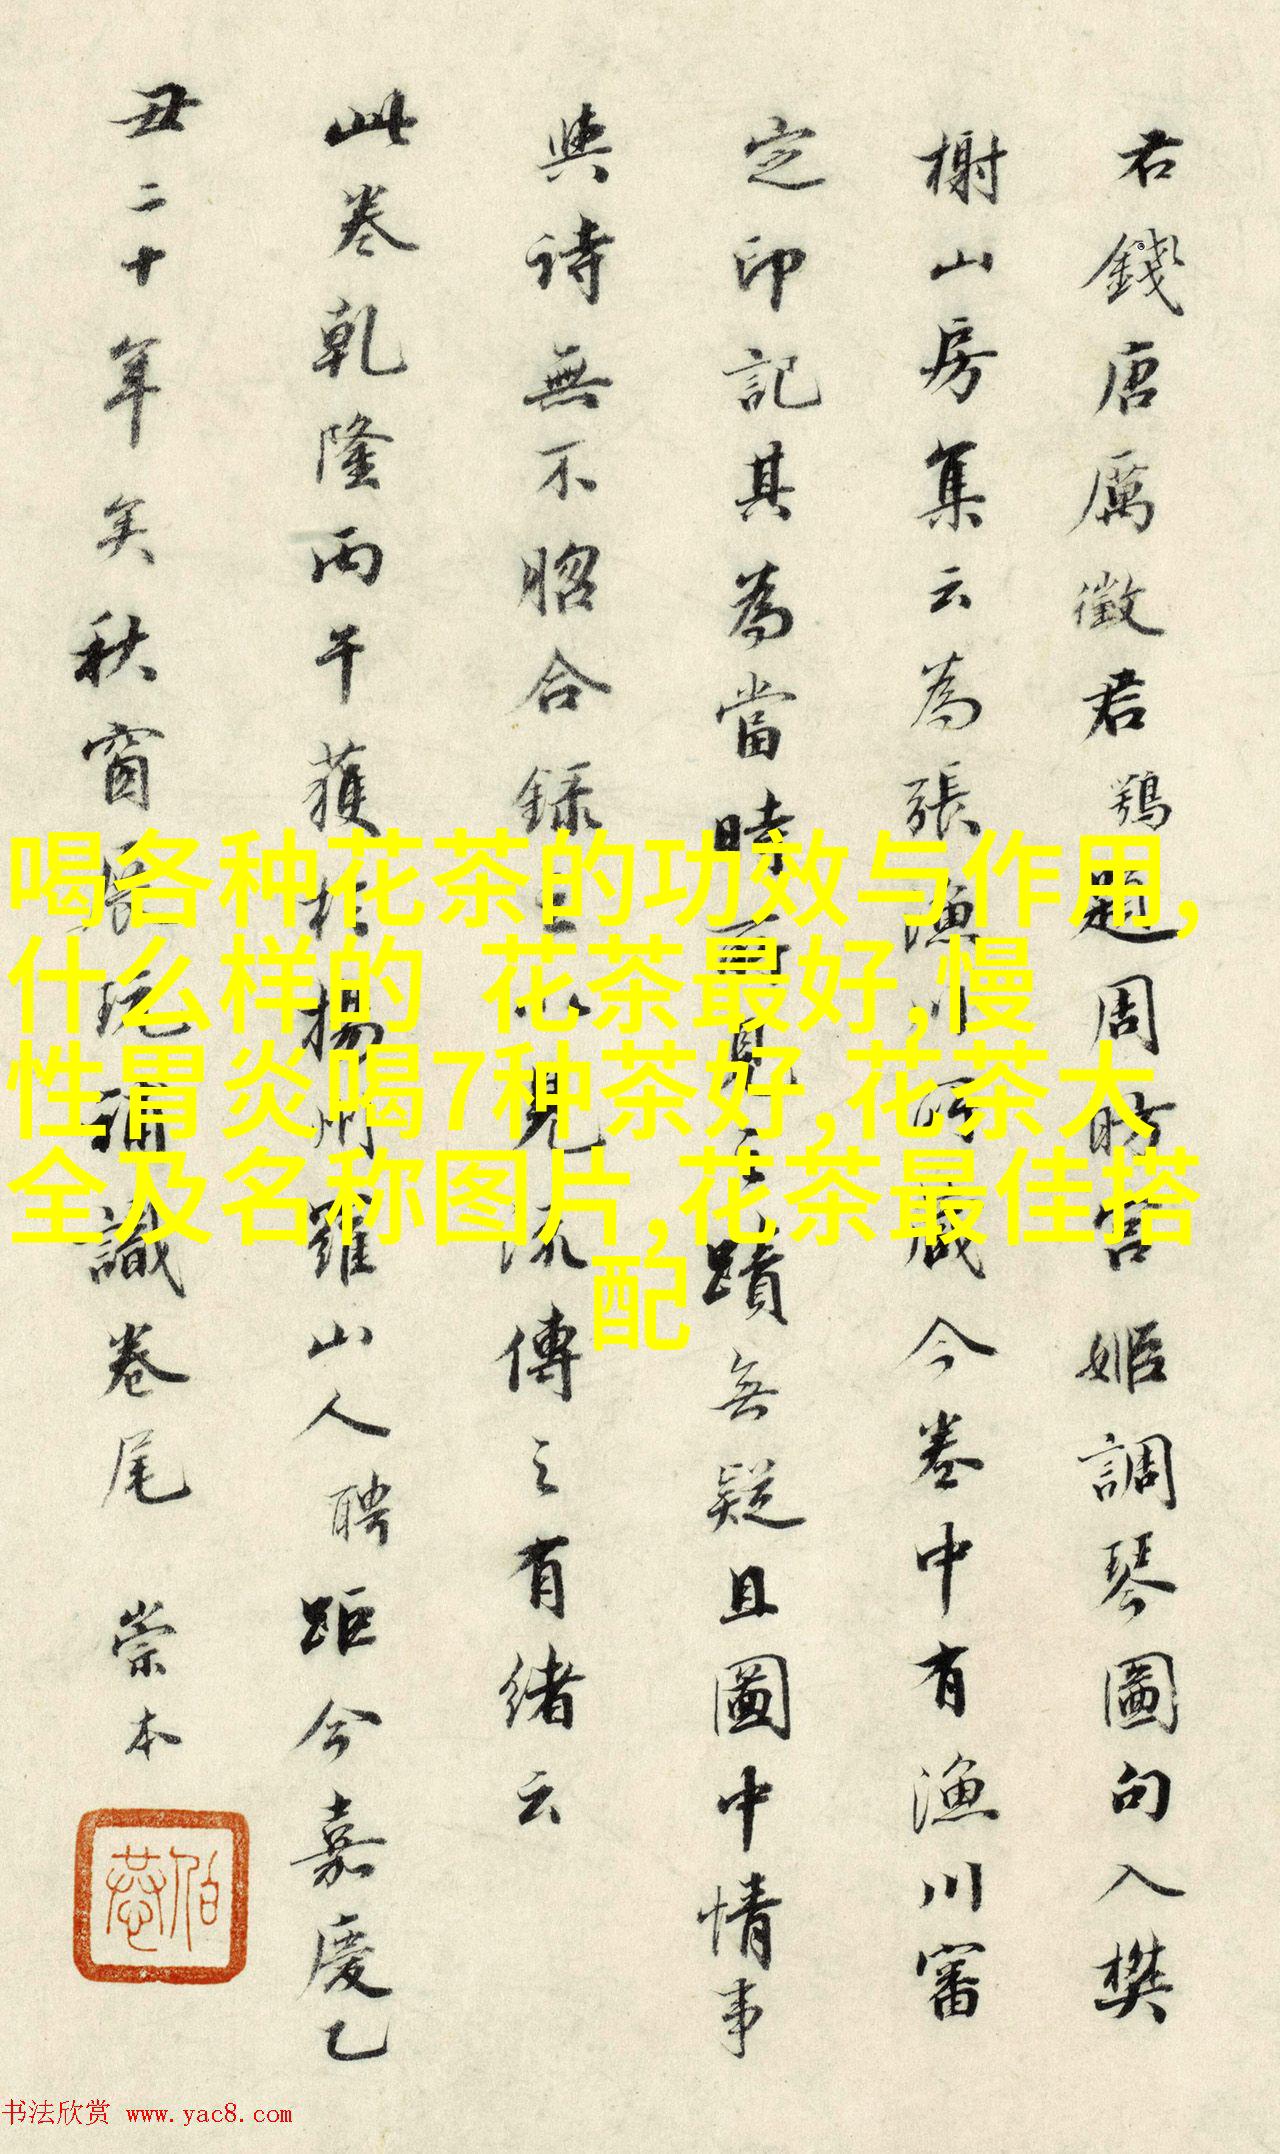 君錢唐厲徵君鶚題周昉宫姬調琴圖句入樊
榭山房集云為張漁川所藏今卷中有漁川審
定印記其為當時所見之蹟無疑且圖中情事
與詩無不脗合録之以見流傳之有緒云
此卷乾隆丙午獲於揚州羅山人聘距今嘉慶乙
丑二十年矣秋窗展玩補識卷尾 崇本
喝各种花茶的功效与作用,
什么样的 花茶最好,慢
性胃炎喝7种茶好,花茶大
全及名称图片,花茶最佳搭
配
书法欣赏 www.yac8.com